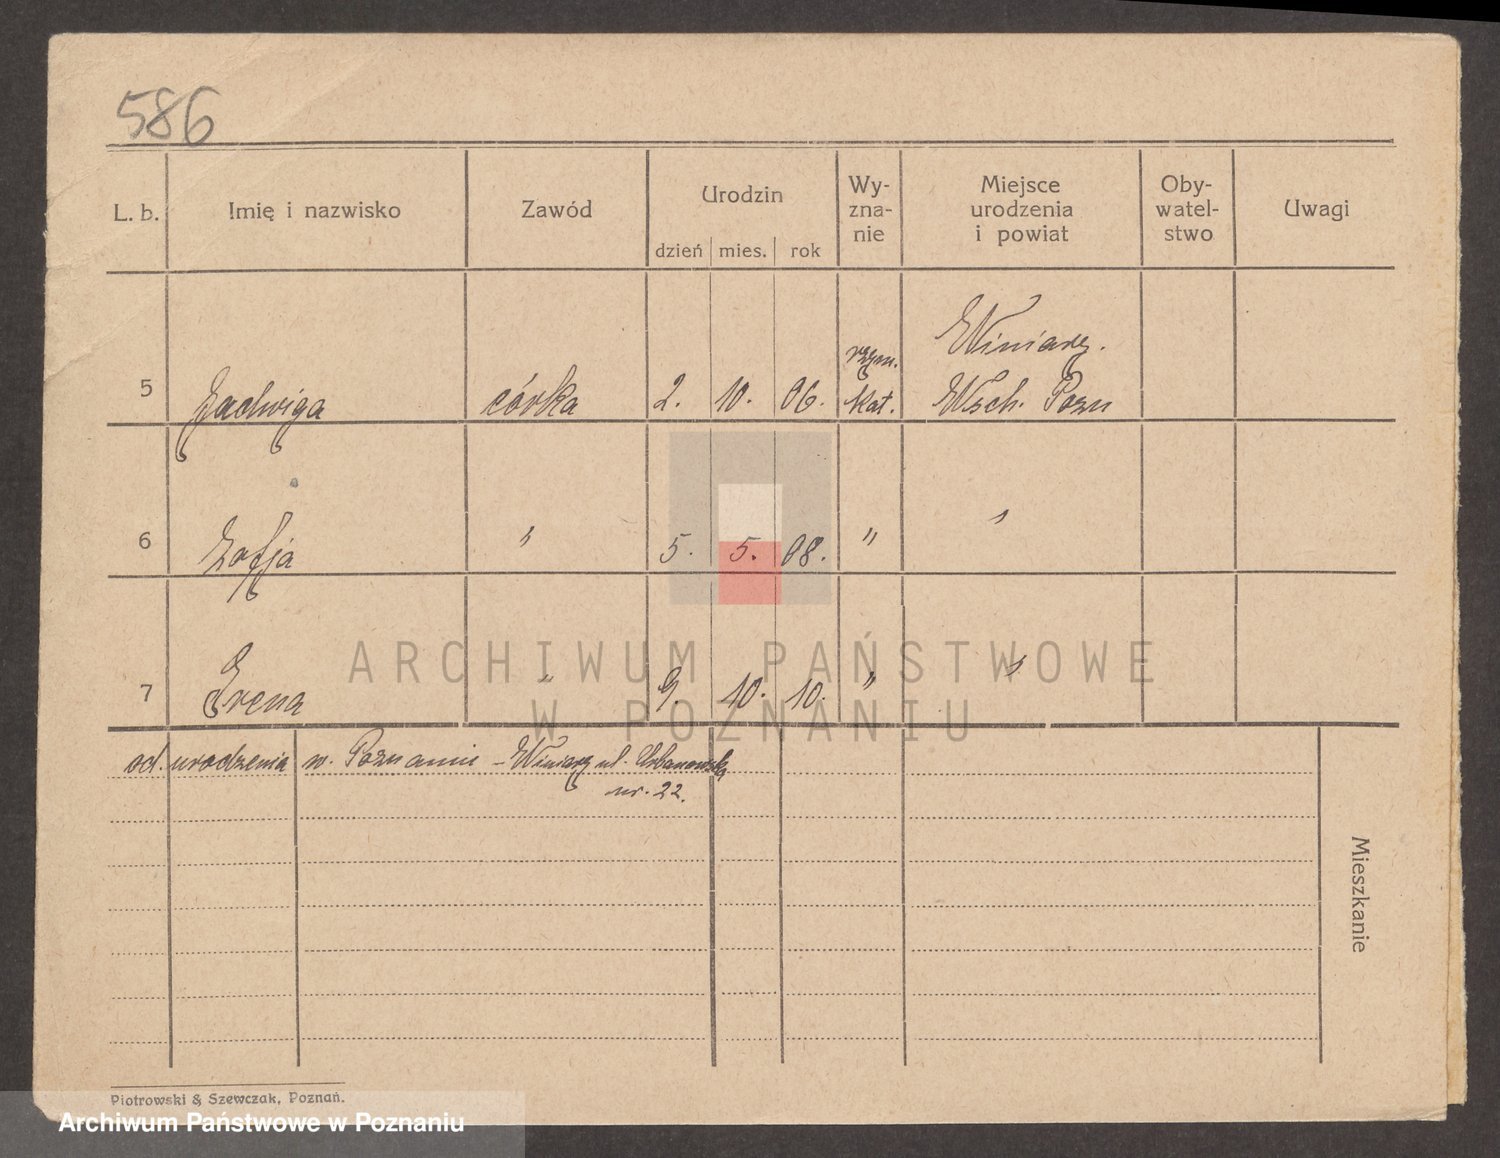 586
L. b. Imię i nazwisko Zawód Urodzin dzień mies. rok Wy- zna- nie Miejsce urodzenia i powiat Oby- watel- stwo Uwagi
5 Jadwiga córka 2. 10. 06. rzym. kat. Winiary. Wsch. Pozn
6 Zofja " 5. 5. 08. " "
7 Irena " 9. 10. 10. " "
ARCHIWUM PAŃSTWOWE
W POZNANIU
od urodzenia w. Poznaniu - Winiary ul. Urbanowska
nr. 22.
Mieszkanie
Piotrowski & Szewczak, Poznań.
Archiwum Państwowe w Poznaniu